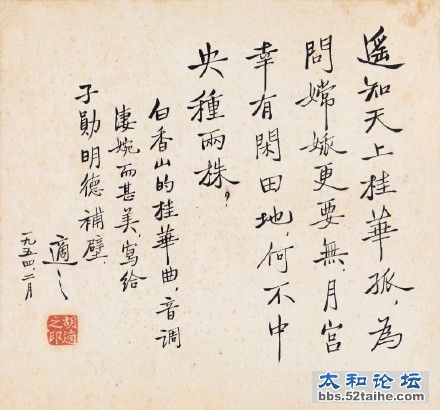 遥知天上桂華孤，為
問嫦娥更要無，月宮
幸有閑田地，何不中
央種兩株？
白香山的桂華曲，音調
淒婉而甚美，寫給
子勛明德補壁．
適之
一九五四二月
胡適之印
太和论坛
bbs.52taihe.com